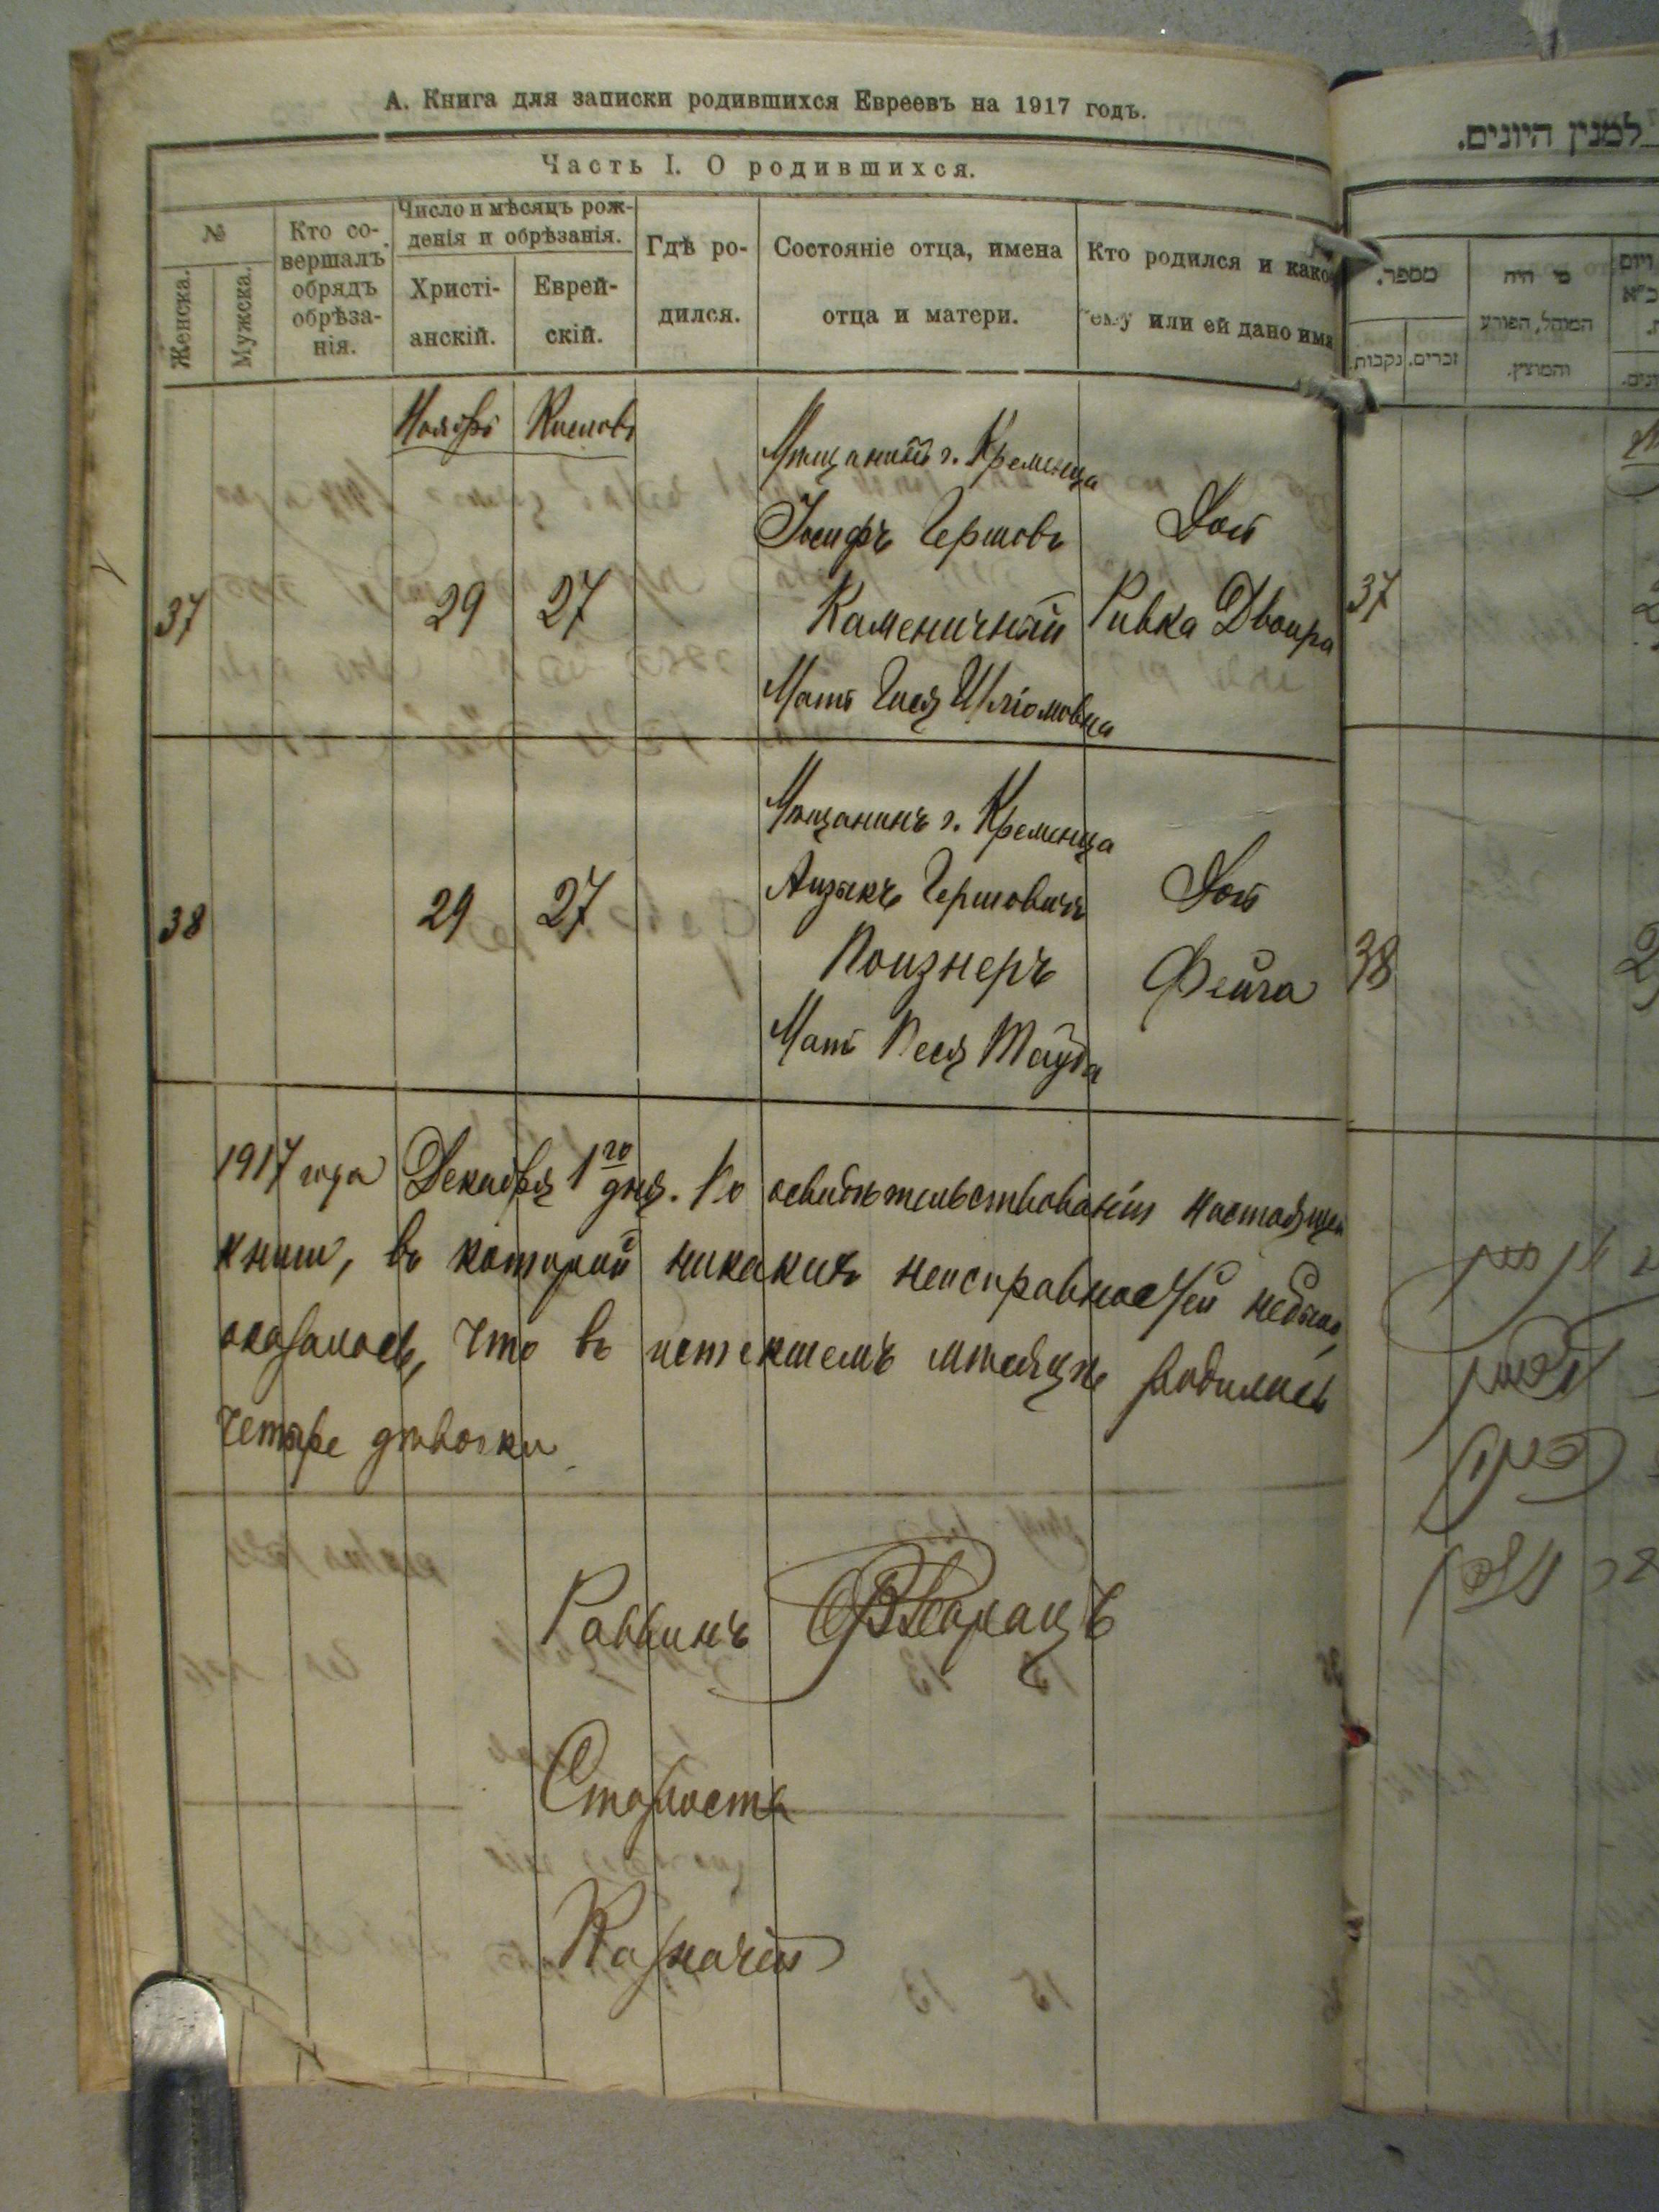 А. Книга для записки родившихся Евреевъ на 1917 годъ.
Часть I. О родившихся.
№
Женска.
Мужска.
Кто со-
вершалъ
обрядъ
обрѣза-
нія.
Число и мѣсяцъ рож-
денія и обрѣзанія.
Христі-
анскій.
Еврей-
скій.
Гдѣ ро-
дился.
Состояніе отца, имена
отца и матери.
Кто родился и како
ему или ей дано имя
Ноябрь
Кислевъ
37
29
27
Мѣщанинъ г. Кременца
Іосифъ Гершовъ
Каменичный
Мать Гися Шліомовна
Дочь
Ривка Двойра
38
29
27
Мѣщанинъ г. Кременца
Айзыкъ Гершовичъ
Пойзнеръ
Мать Песя Тауба
Дочь
Фейга
1917 года Декабря 1го дня. По освидѣтельствованіи настоящей
книги, въ которой никакихъ неисправностей небыло,
оказалось, что въ истекшемъ мѣсяцѣ родились
четыре дѣвочки
Раввинъ
Староста
Казначей
למנין היונים.
מספר.
נקבות.
זכרים.
מי היה
המוהל, הפורע
והמוצץ.
37
38